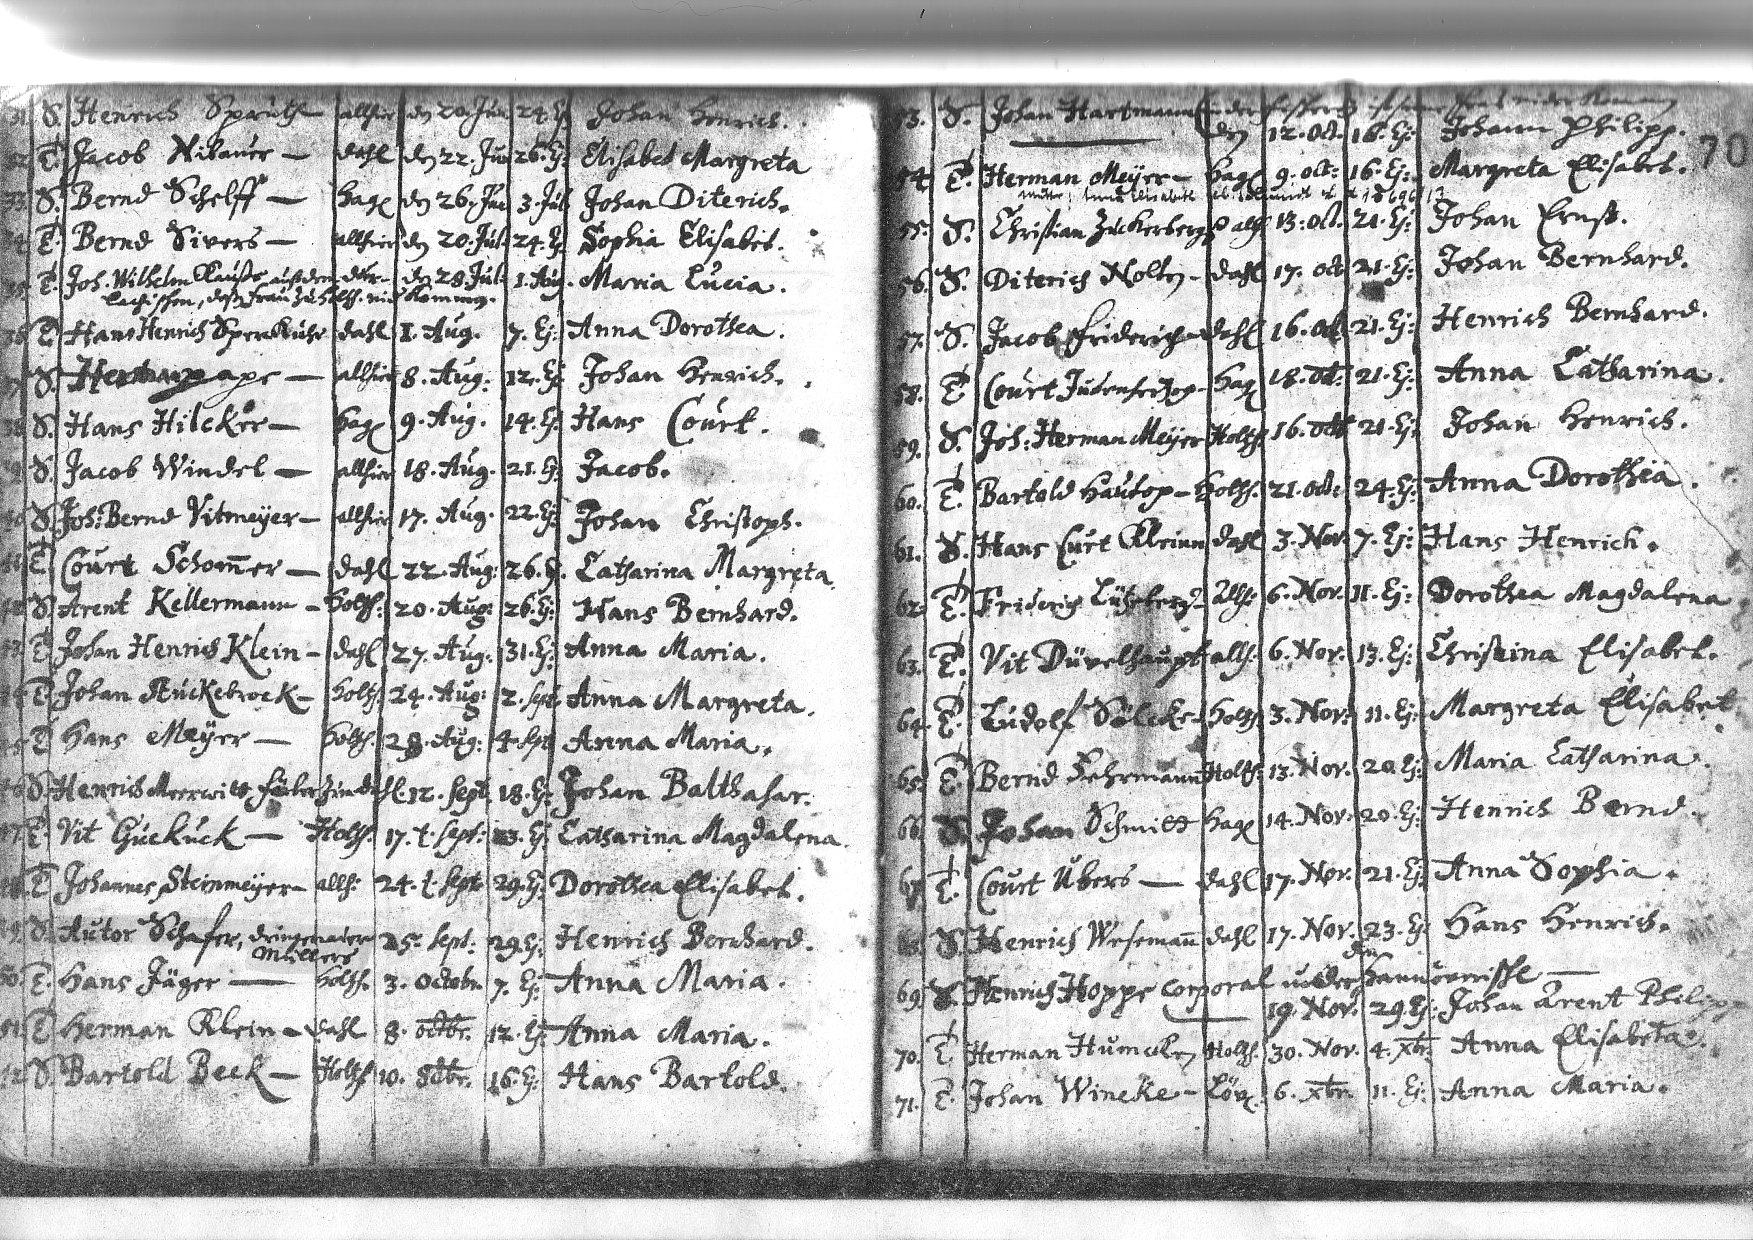 31. S. Henrich Spruth allhier den 20. Jun 24. Ej. Johan Henrich.
32. T. Jacob Nibaur — dahl den 22. Jun 26. Ej. Elisabet Margreta
33. S. Bernd Schelff — hag den 26. Jun 3. Jul Johan Diterich.
34. T. Bernd Sivers — allhier den 20. Jul 24. Ej. Sophia Elisabet.
35. T. Joh. Wilhelm Clauss den 28. Jul 1. Aug. Maria Lucia.
36. T. Hans Henrich dahl 1. Aug. 7. Ej: Anna Dorothea.
37. S. allhier 8. Aug: 12. Ej. Johan Henrich.
38. S. Hans Hilcker — hag 9. Aug. 14. Ej. Hans Court.
39. S. Jacob Windel — allhier 18. Aug. 21. Ej: Jacob.
40. S. Joh: Bernd Vitmeÿer — allhier 17. Aug. 22. Ej: Johan Christoph.
41. T. Court Schom̅er — dahl 22. Aug: 26. Ej. Catharina Margreta
42. S. Arent Kellermann — holtzh: 20. Aug: 26. Ej: Hans Bernhard.
43. T. Johan Henrich Klein — dahl 27. Aug: 31. Ej: Anna Maria.
44. T. Johan Stückebrock — holtzh. 24. Aug: 2. sept Anna Margreta.
45. T. Hans Meÿer — holtzh. 28. Aug: 4. sept Anna Maria.
46. S. Henrich 12. sept. 18. Ej: Johan Balthasar.
47. T. Vit Guckuck — Holtzh. 17. t. sept: 23. Ej. Catharina Magdalena.
48. T. Johannes Steinmeÿer — allh: 24. t. sept 29. Ej: Dorothea Elisabet.
49. S. Autor Schafer, 25. sept: 29. Ej: Henrich Bernhard.
Müllers
50. T. Hans Jäger — holtzh. 3. Octobr. 7. Ej: Anna Maria.
51. T. Herman Klein — dahl 8. octbr. 12. Ej: Anna Maria.
52. S. Bartold Beck — Holtzh 10. 8tbr. 16. Ej: Hans Bartold.
70
53. S. Johan Hartmann
den 12. Oct. 16. Ej: Johann Philipp.
54. T. Herman Meÿer — hag 9. oct: 16. Ej: Margreta Elisabet.
55. S. Christian Zuckerberg allh 13. oct. 21. Ej: Johan Ernst.
56. S. Diterich Nolten — dahl 17. oct 21. Ej: Johan Bernhard.
57. S. Jacob Friderich — dahl 16. oct. 21. Ej: Henrich Bernhard.
58. T. Court hag 18. Oct: 21. Ej: Anna Catharina.
59. S. Joh: Herman Meÿer Holtzh 16. Oct 21. Ej: Johan Henrich.
60. T. Bartold Hautop — Holtzh. 21. oct: 24. Ej: Anna Dorothea.
61. S. Hans Curt Kleinn dahl 3. Nov. 7. Ej: Hans Henrich.
62. T. Friderich allh: 6. Nov. 11. Ej: Dorothea Magdalena
63. T. Vit Düvelhaupt allh: 6. Nov: 13. Ej: Christina Elisabet.
64. T. Ludolf Sölcke — Holtzh 3. Nov: 11. Ej: Margreta Elisabet
65. T. Bernd Fehrmann Holtzh: 13. Nov. 20. Ej: Maria Catharina.
66. S. Johan Schmitt hag 14. Nov. 20. Ej: Henrich Bernd.
67. T. Court Übers — dahl 17. Nov. 21. Ej: Anna Sophia.
68. S. Henrich Weseman̅ dahl 17. Nov. 23. Ej: Hans Henrich.
69. S. Henrich Hoppe corporal unter hannoverische —
19. Nov. 29. Ej: Johan Arent Philipp
70. T. Herman Humcken Holtzh. 30. Nov. 4. Xbr. Anna Elisabeta.
71. T. Johan Wineke — 6. Xbr. 11. Ej: Anna Maria.